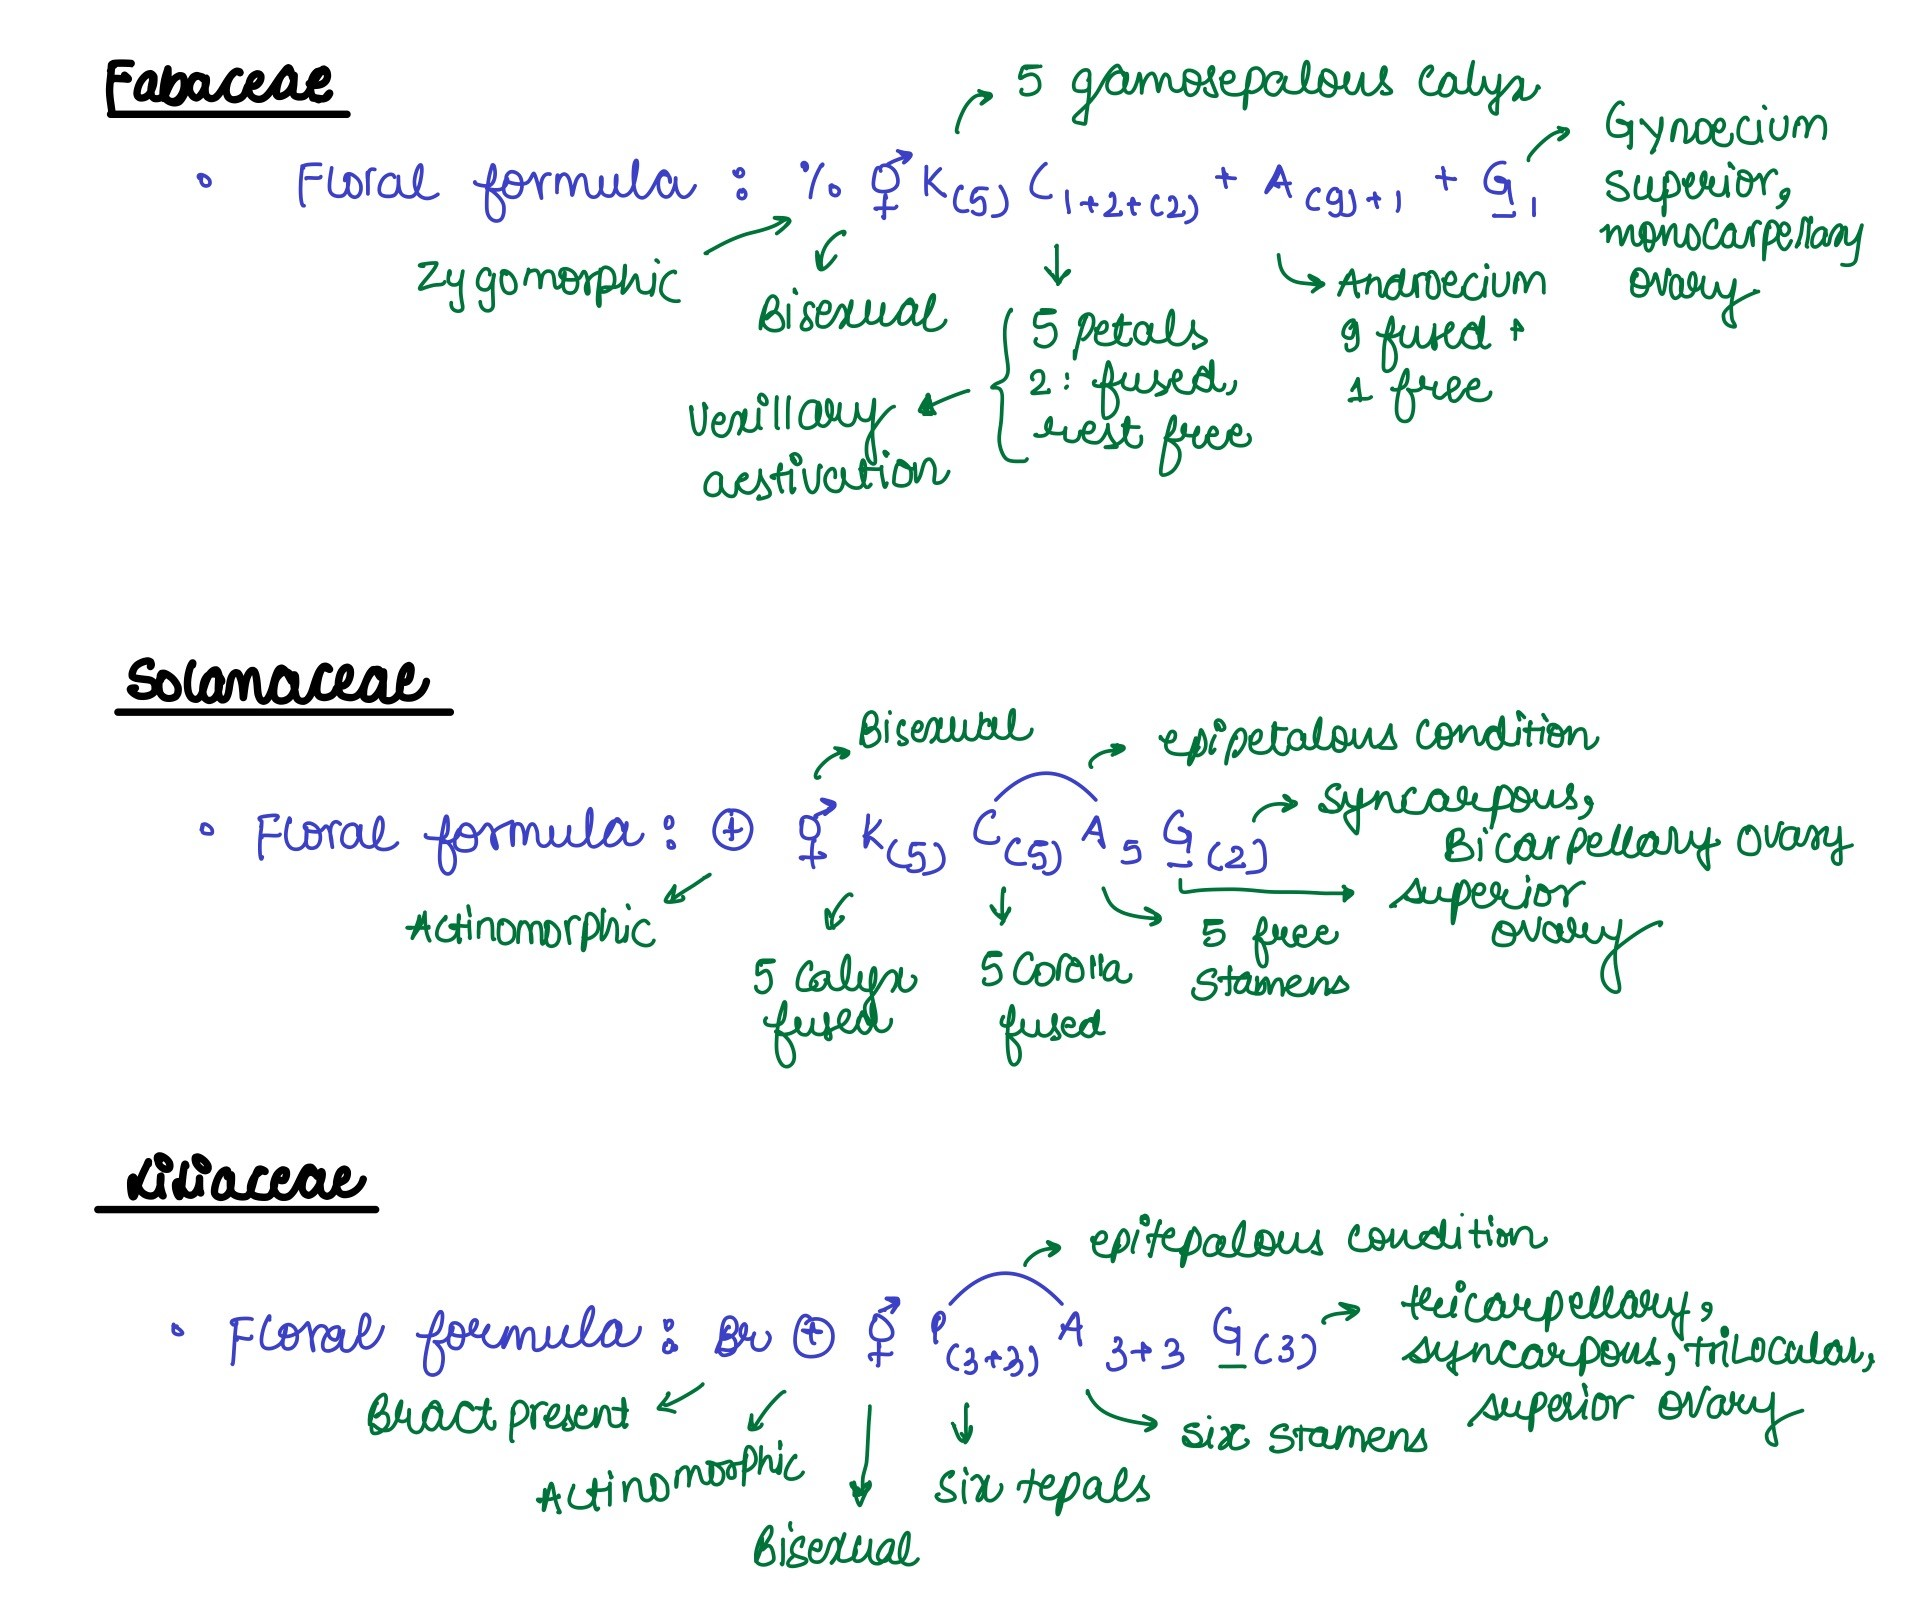 Fabaceae
5 gamosepalous calyx
• Floral formula : % ⚥ K(5) C1+2+(2) + A(9)+1 + G1
Gynoecium
superior,
monocarpellary
ovary
Zygomorphic
Bisexual
5 petals
2: fused,
rest free
Vexillary
aestivation
Androecium
9 fused +
1 free
Solanaceae
Bisexual
epipetalous condition
• Floral formula : ⊕ ⚥ K(5) C(5) A5 G(2)
syncarpous,
Bicarpellary ovary
superior
ovary
Actinomorphic
5 calyx
fused
5 corolla
fused
5 free
stamens
Liliaceae
epitepalous condition
• Floral formula : Br ⊕ ⚥ P(3+3) A3+3 G(3)
tricarpellary,
syncarpous, trilocular,
superior ovary
Bract present
Actinomorphic
Bisexual
Six tepals
six stamens